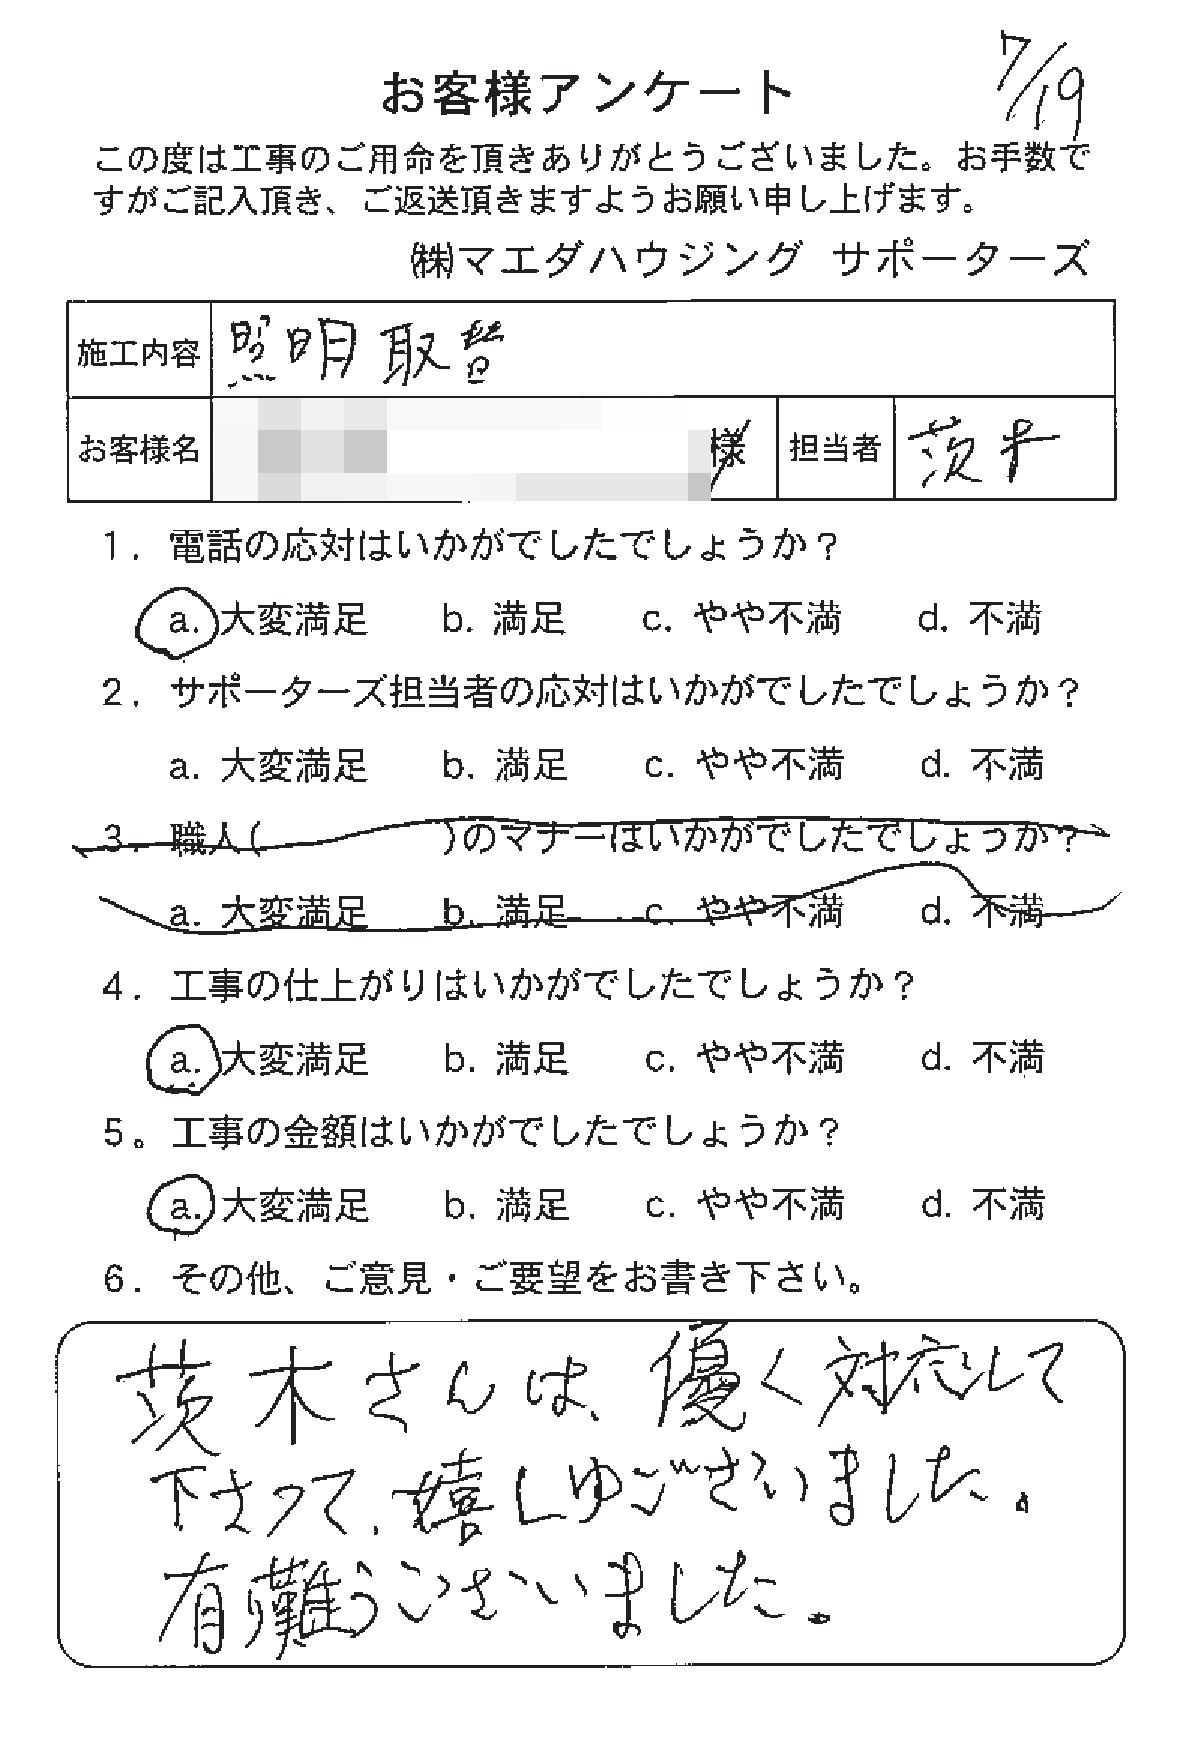 7/19
お客様アンケート
この度は工事のご用命を頂きありがとうございました。お手数で
すがご記入頂き、ご返送頂きますようお願い申し上げます。
㈱マエダハウジング サポーターズ
施工内容 照明取替
お客様名 様 担当者 茨木
1. 電話の応対はいかがでしたでしょうか？
a. 大変満足 b. 満足 c. やや不満 d. 不満
2. サポーターズ担当者の応対はいかがでしたでしょうか？
a. 大変満足 b. 満足 c. やや不満 d. 不満
3. 職人( )のマナーはいかがでしたでしょうか？
a. 大変満足 b. 満足 c. やや不満 d. 不満
4. 工事の仕上がりはいかがでしたでしょうか？
a. 大変満足 b. 満足 c. やや不満 d. 不満
5。工事の金額はいかがでしたでしょうか？
a. 大変満足 b. 満足 c. やや不満 d. 不満
6. その他、ご意見・ご要望をお書き下さい。
茨木さんは、優く対応して
下さって、嬉しゆございました。
有難うございました。